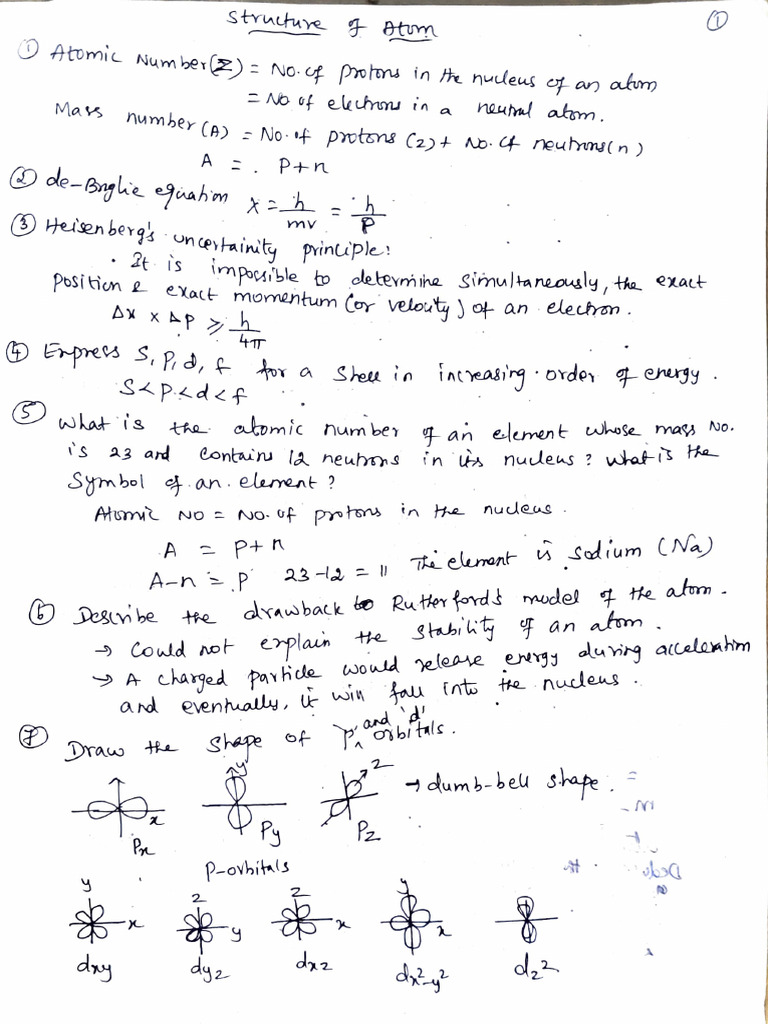 Structure of Atom
①
① Atomic Number(Z) = No. of protons in the nucleus of an atom
= No of electrons in a neutral atom.
Mass number(A) = No. of protons (Z) + No. of neutrons(n)
A = . P+n
② de-Broglie equation λ = h/mv = h/P
③ Heisenberg's uncertainity principle:
• It is impossible to determine simultaneously, the exact
position & exact momentum (or velocity) of an electron.
Δx × ΔP ≥ h/4π
④ Express S, P, d, f for a shell in increasing order of energy.
S<P<d<f
⑤ What is the atomic number of an element whose mass No.
is 23 and contains 12 neutrons in its nucleus? What is the
Symbol of an element?
Atomic No = No. of protons in the nucleus.
A = P+n
A-n = P 23-12 = 11 The element is sodium (Na)
⑥ Describe the drawback to Rutherford's model of the atom.
→ Could not explain the stability of an atom.
→ A charged particle would release energy during acceleration
and eventually, it will fall into the nucleus.
⑦ Draw the shape of 'P' and 'd' orbitals.
x y z → dumb-bell shape.
Px Py Pz
P-orbitals
y x z y z x y x
dxy dyz dxz dx²-y² dz²